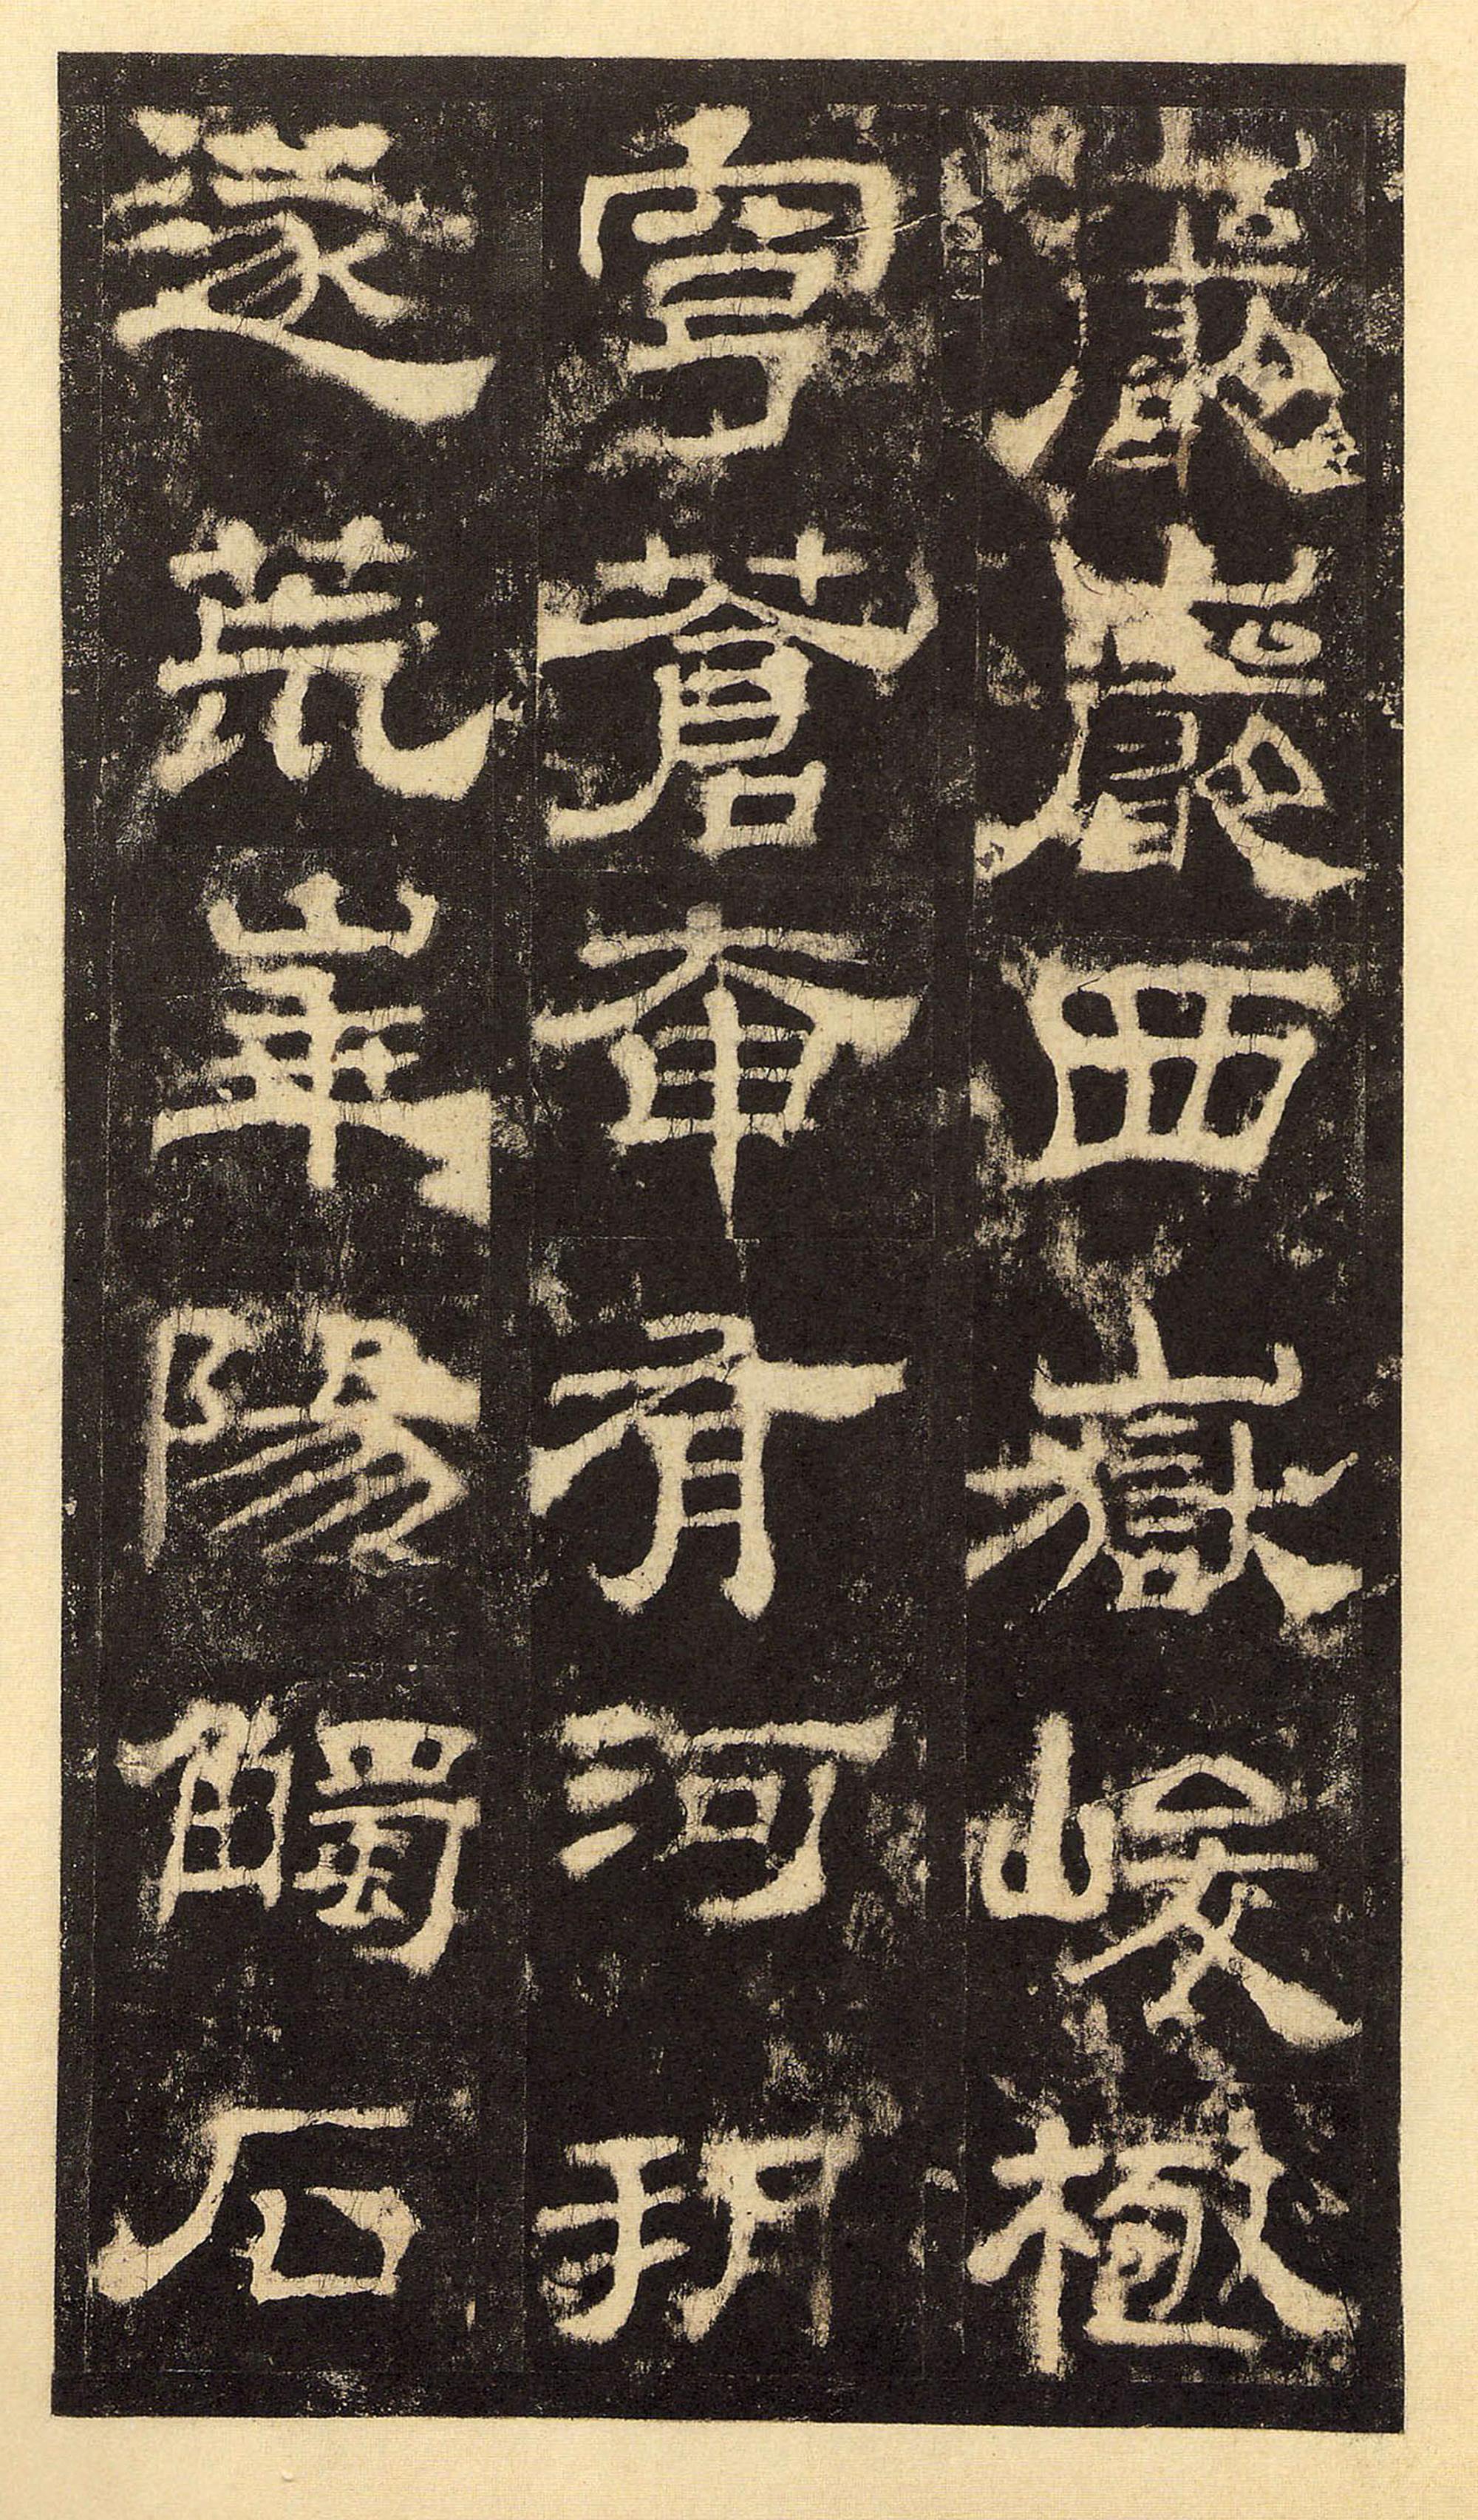 巖巖西嶽峻極
穹蒼奄有河朔
遂荒崋陽觸石